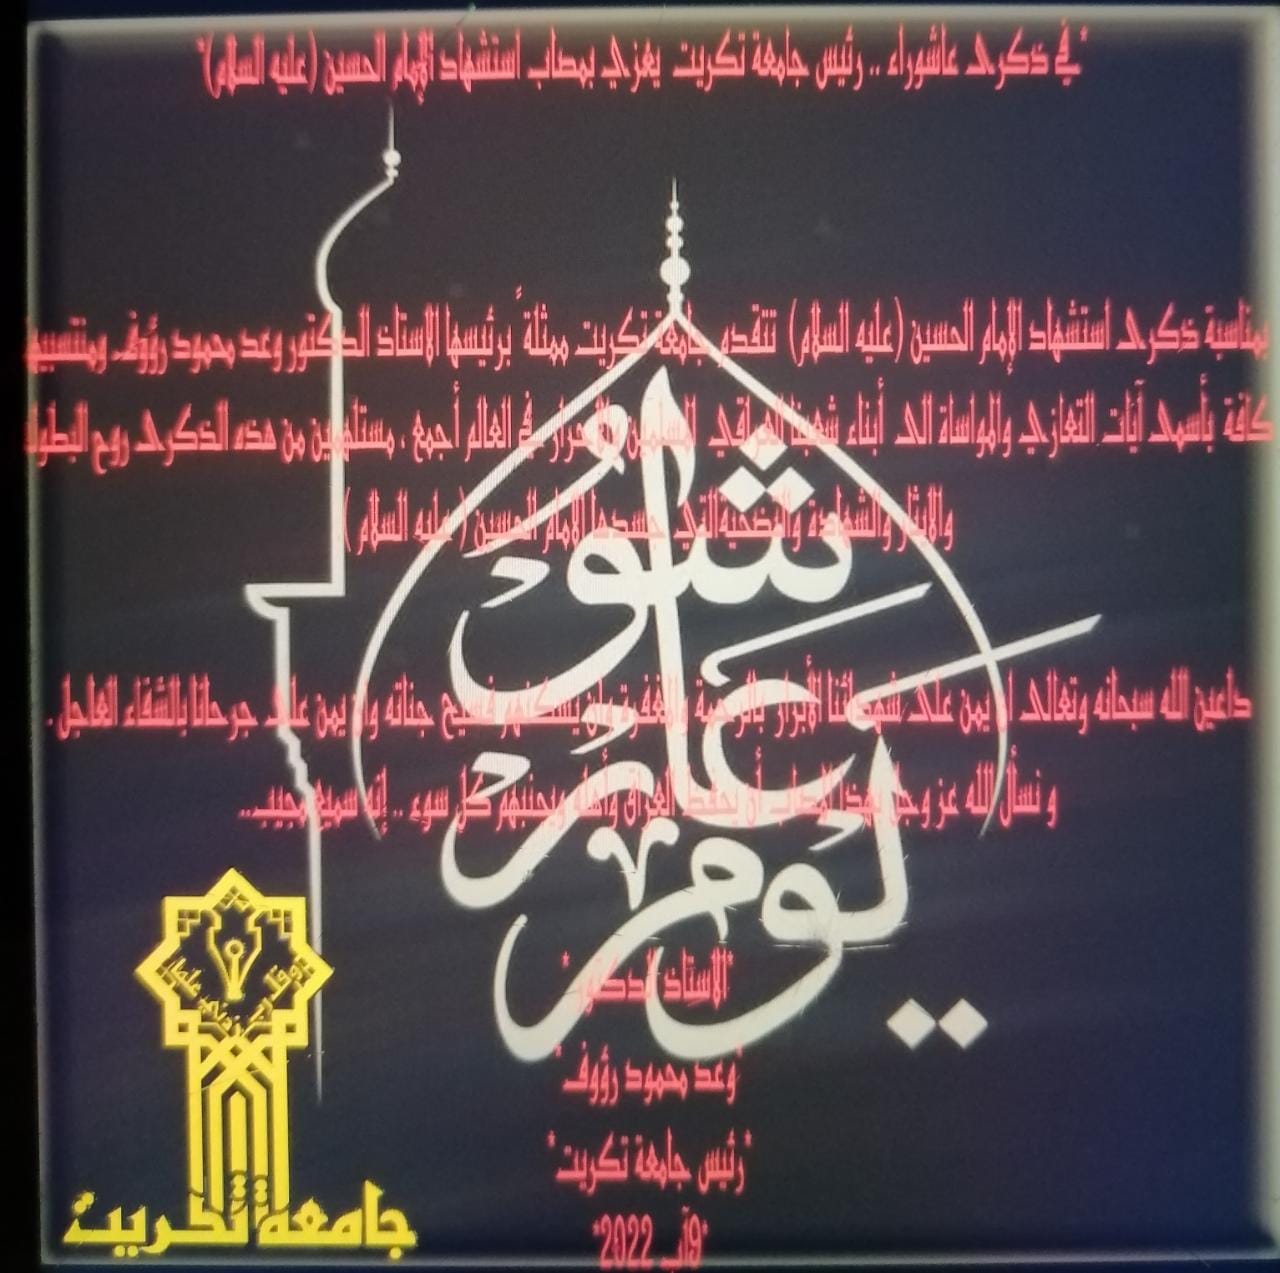 *في ذكرى عاشوراء .. رئيس جامعة تكريت يعزي بمصاب استشهاد الإمام الحسين (عليه السلام)*
بمناسبة ذكرى استشهاد الإمام الحسين (عليه السلام) تتقدم جامعة تكريت ممثلةً برئيسها الاستاذ الدكتور وعد محمود رؤوف ومنتسبيها
كافة بأسمى آيات التعازي والمواساة الى أبناء شعبنا العراقي المسلمين والأحرار في العالم أجمع ، مستلهمين من هذه الذكرى روح البطولة
والايثار والشهادة والتضحية التي جسدها الامام الحسين ( عليه السلام )
داعين الله سبحانه وتعالى ان يمن على شهدائنا الأبرار بالرحمة والمغفرة وان يسكنهم فسيح جناته وان يمن على جرحانا بالشفاء العاجل .
و نسأل الله عز وجل بهذا المصاب أن يحفظ العراق وأهله ويجنبهم كل سوء .. إنه سميع مجيب..
يوم عاشوراء
*الاستاذ الدكتور*
*وعد محمود رؤوف*
*رئيس جامعة تكريت*
*9آب 2022*
جامعة تكريت